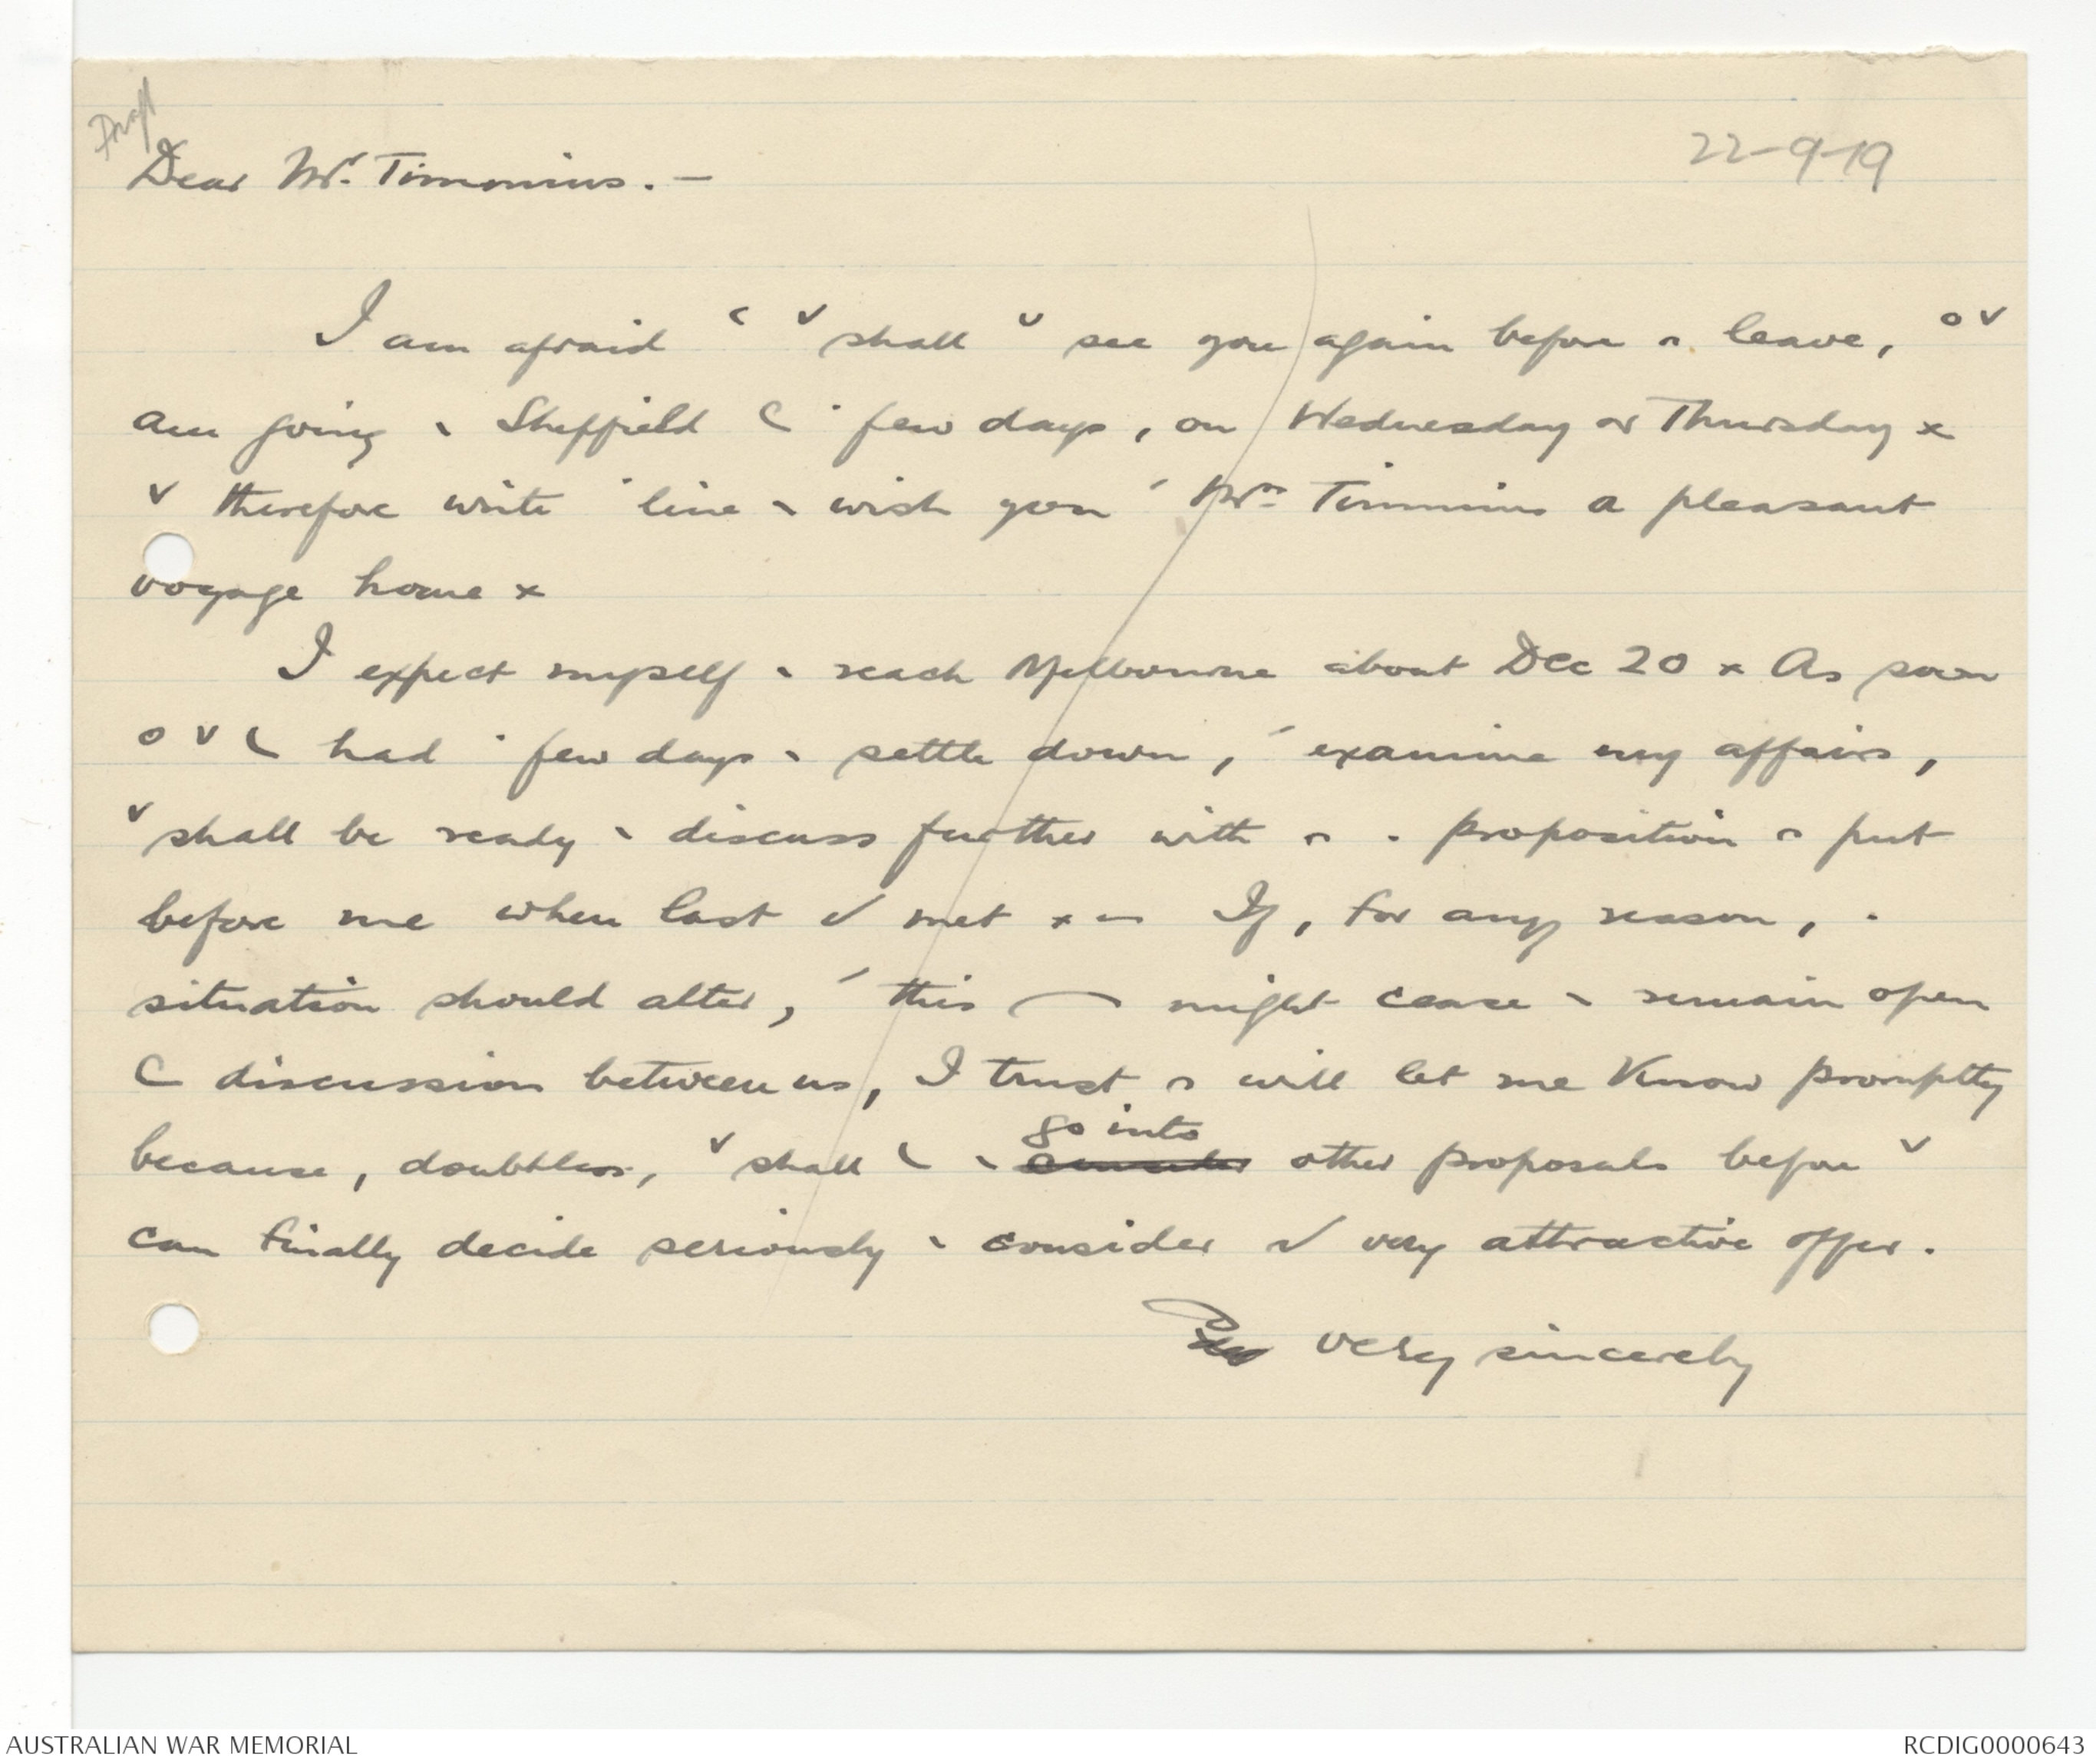 Draft
22-9-19
Dear Mr. Timmins. —
I am afraid ‹ v shall ᴗ see you again before ∩ leave, o v
am going ˎ Sheffield C ˙ few days, on Wednesday or Thursday x
v therefore write ˙ line ˎ wish you ˊ Mrs. Timmins a pleasant
voyage home x
I expect myself ˎ reach Melbourne about Dec 20 x As soon
o v ( had ˙ few days ˎ settle down, ˊ examine my affairs,
v shall be ready ˎ discuss further with ∩ . proposition ∩ put
before me when last √ met x — If, for any reason, .
situation should alter, ˊ this ⌒ might cease ˎ remain open
C discussion between us, I trust ∩ will let me know promptly
go into
because, doubtless, v shall ( ˎ consider other proposals before v
can finally decide seriously ˎ consider √ very attractive offer.
very sincerely
AUSTRALIAN WAR MEMORIAL
RCDIG0000643